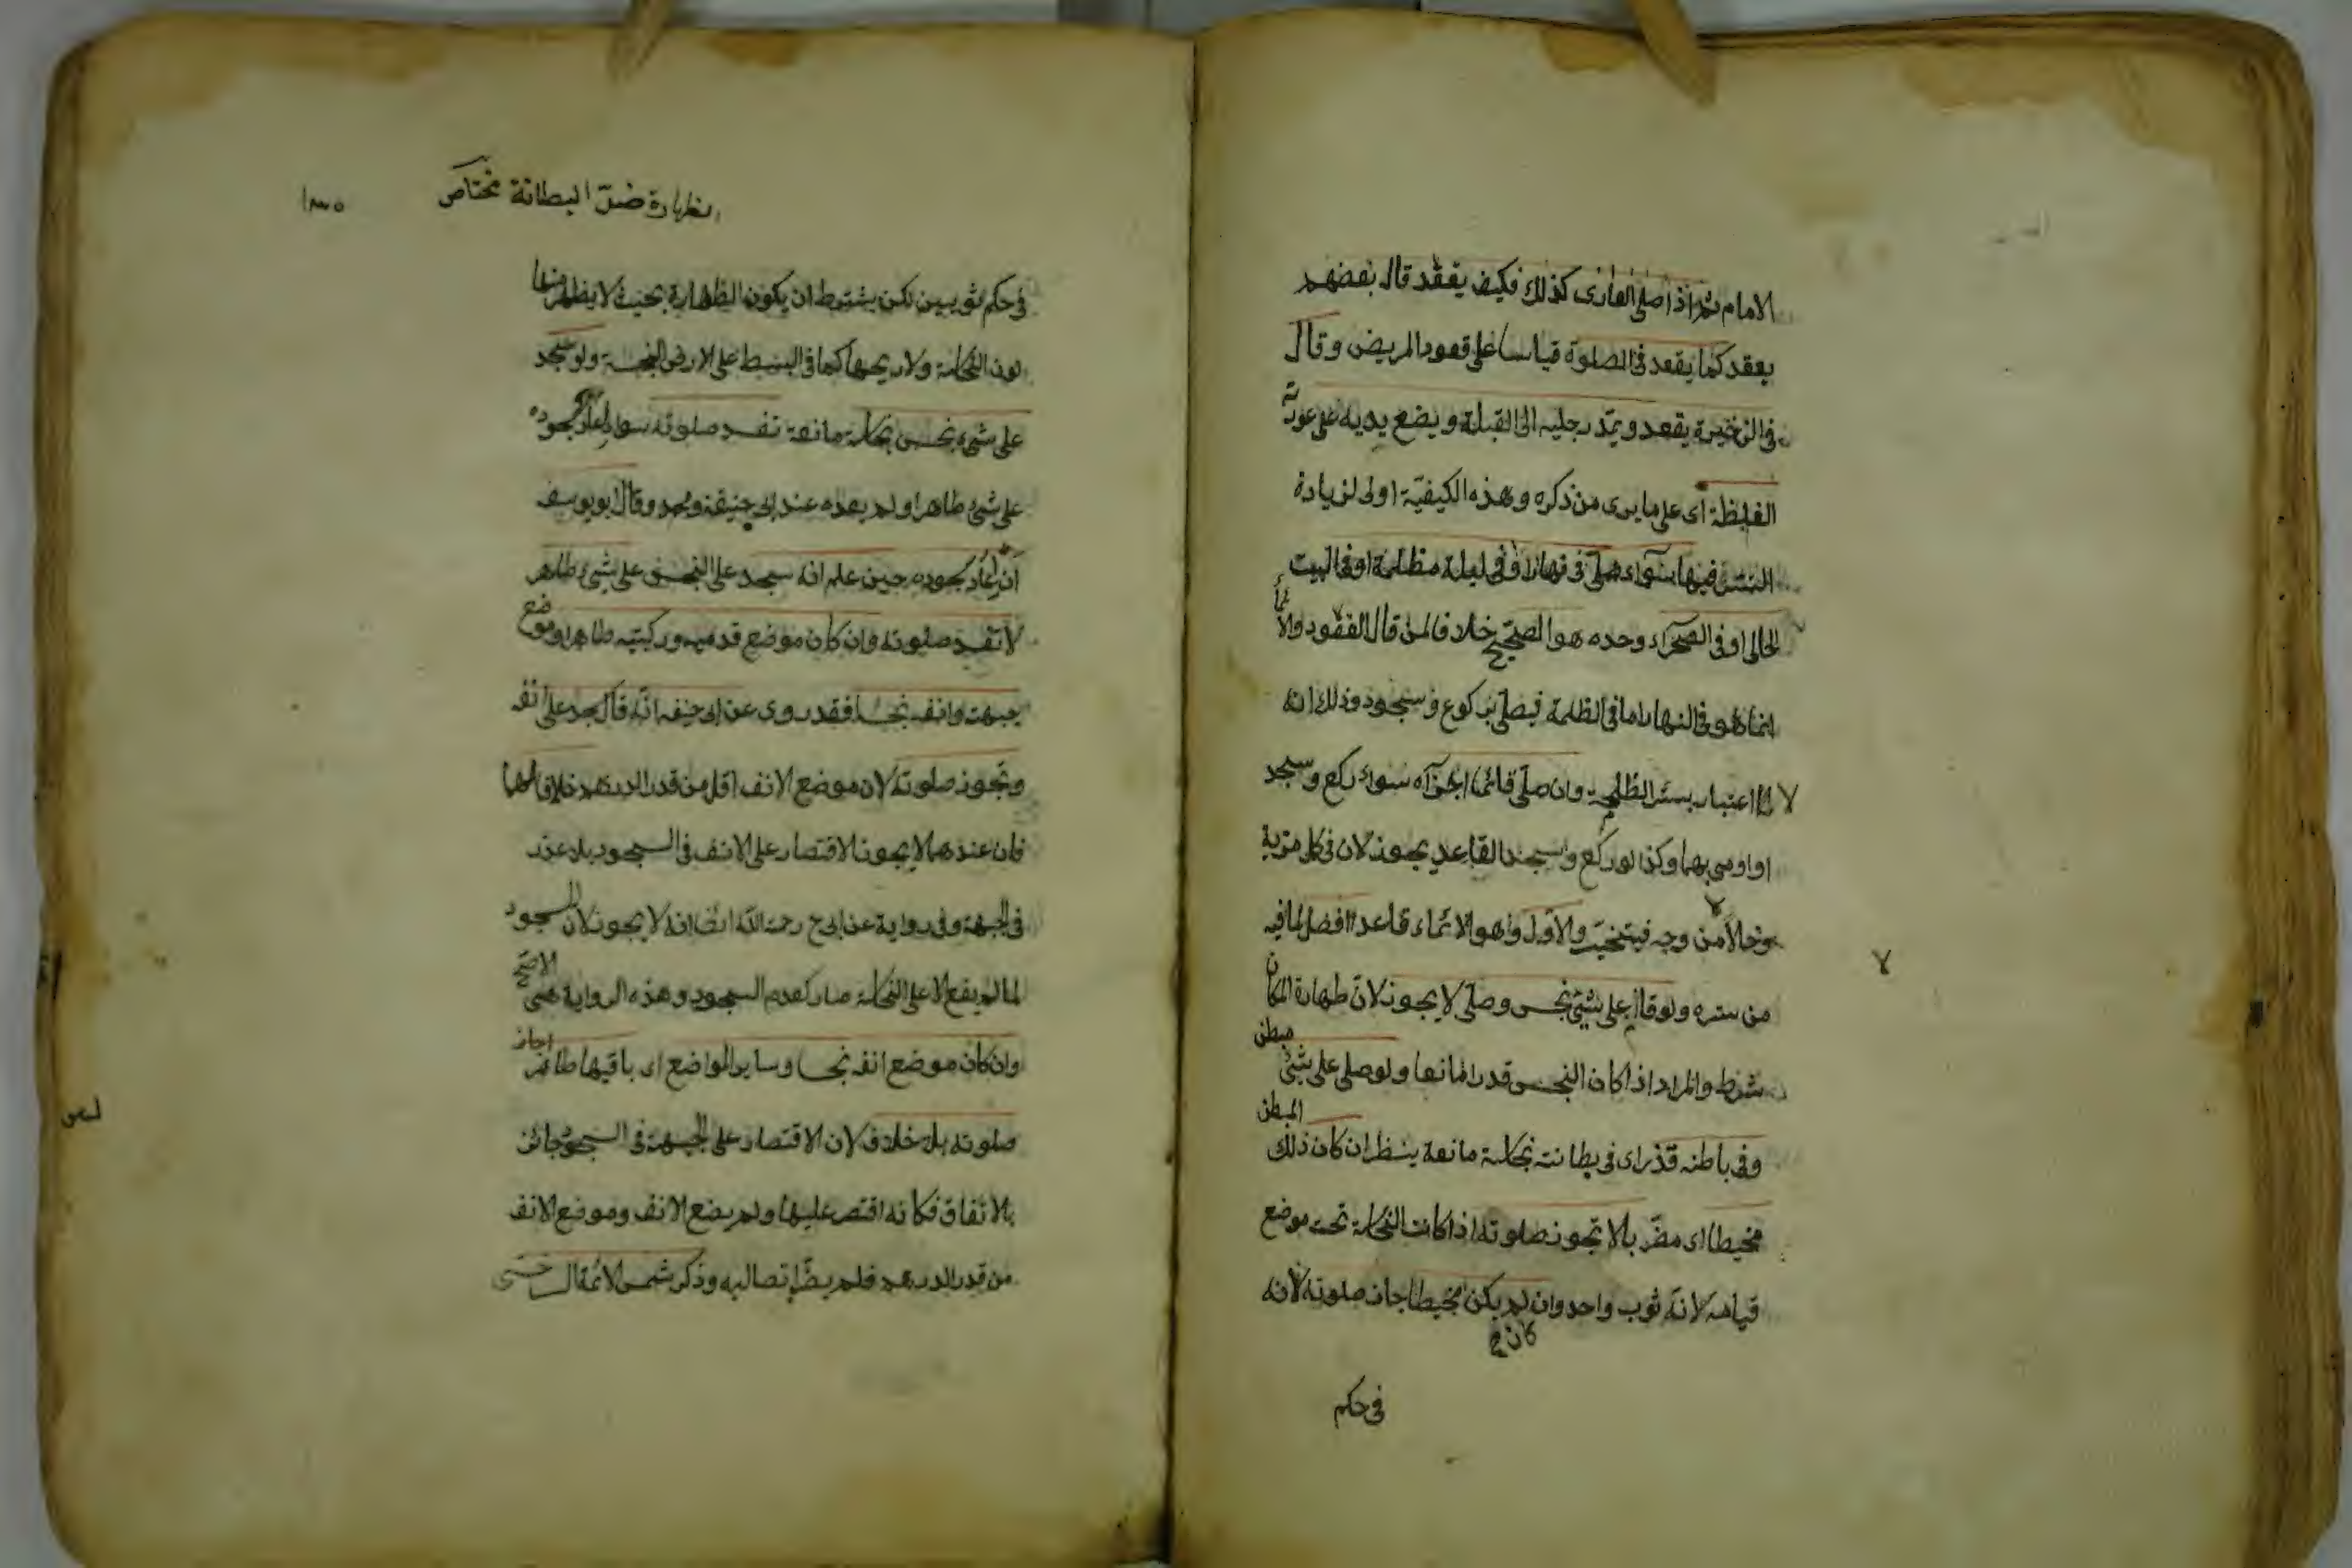 الامام ثم اذا صلى العارى كذلك فكيف يقعد قال بعضهم
يقعد كما يقعد فى الصلوة قياسا على قعود المريض وقال
فى الذخيرة يقعد ويمدّ رجليه الى القبلة ويضع يديه على عورته
الغليظة اى على ما يرى من ذكره وهذه الكيفيّة اولى لزيادة
الستر فيها سوآء صلى فى نهار او فى ليلة مظلمة او فى البيت
الخالى او فى الصحرآء وحده هو الصحيح خلافا لمن قال القعود والايماء
انما هو فى النهار اما فى الظلمة فيصلى بركوع وسجود وذلك لانه
لا اعتبار بستر الظلمة وان صلى قائما اجزآه سواء ركع وسجد
او اومى بهما وكذا لو ركع وسجد القاعد يجوز لان فى كل مزية
وخللا من وجه فيتخيّر والاوّل وهو الايماء قاعدا افضل لما فيه
من ستره ولو قام على شئ نجس وصلى لا يجوز لانّ طهارة المكان
شرط والمراد اذا كان النجس قدرا مانعا ولو صلى على شئ مبطن
وفى باطنه قذر اى فى بطانته نجاسة مانعة ينظر ان كان ذلك المبطن
مخيطا اى مضرّبا لا تجوز صلوته اذا كانت النجاسة تحت موضع
قيامه لانه ثوب واحد وان لم يكن مخيطا جاز صلوته لانه
كان ح
فى حكم
لا
الظهارة ضدّ البطانة مختار ص
١٣٥
فى حكم ثوبين لكن يشترط ان يكون الظهارة بحيث لا يظهر منها
لون النجاسة ولا ريحها كما فى البسط على الارض النجسة ولو سجد
على شئ نجس نجاسة مانعة تفسد صلوته سواء اعاد سجوده
على شئ طاهر او لم يعده عند ابى حنيفة ومحمد وقال ابو يوسف
ان اعاد سجوده حين علم انه سجد على النجس على شئ طاهر
لا تفسد صلوته وان كان موضع قدميه وركبتيه طاهرا وموضع
جبهته وانفه نجسا فقد روى عن ابى حنيفه انّه قال يسجد على انفه
وتجوز صلوته لان موضع الانف اقل من قدر الدرهم خلافا لهما
فان عندهما لا يجوز الاقتصار على الانف فى السجود بلا عذر
فى الجبهة وفى رواية عن ابى ح رحمة اللّه ايضا انه لا يجوز لان السجود
لما لم يقع الا على النجاسة صار كعدم السجود وهذه الرواية هى الاصح
وان كان موضع انفه نجسا وسائر المواضع اى باقيها طاهر اجاز
صلوته بلا خلاف لان الاقتصار على الجبهة فى السجود جائز
بالاتفاق فكانه اقتصر عليها ولم يضع الانف وموضع الانف
من قدر الدرهم فلم يضرّ اتصاله به وذكر شمس الائمة السرخسى